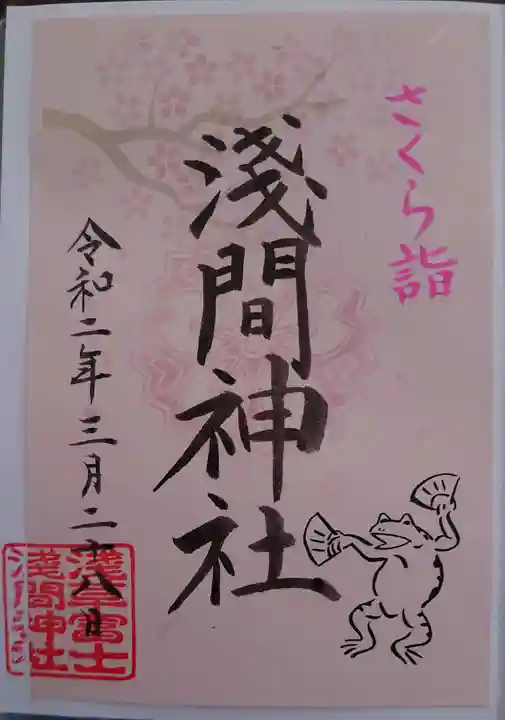 さくら詣
淺間神社
令和二年三月二十八日
淺草富士
淺間神社